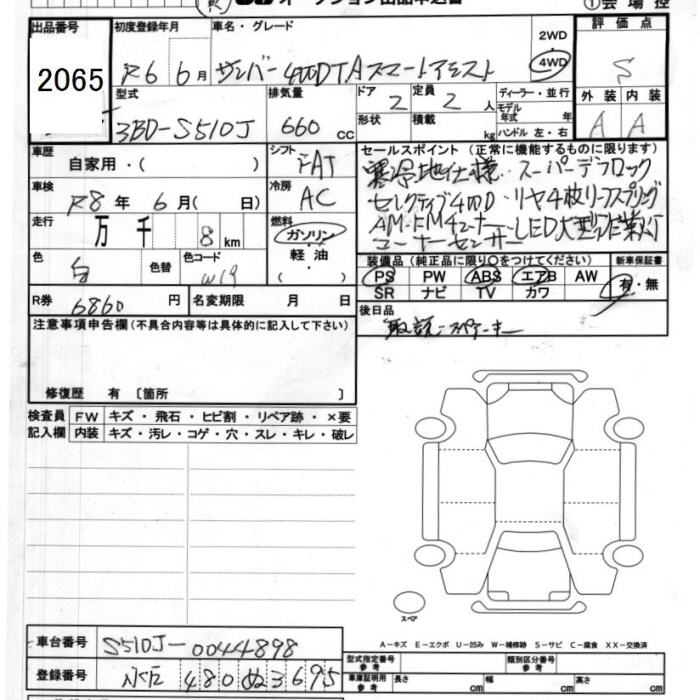 ①会場控
出品番号
2065
初度登録年月
R6 6月
車名・グレード
サンバー 4WD TA スマートアシスト
2WD
・
4WD
評価点
S
型式
3BD-S510J
排気量
660 cc
ドア
2
定員
2 人
形状
積載
kg
ディーラー・並行
モデル年式 年
ハンドル 左・右
外装 内装
A A
車歴
自家用・( )
シフト
FAT
冷房
AC
車検
R8年 6月( 日)
走行
万 千 8 km
燃料
ガソリン
軽油
( )
色
白
色替
色コード
W19
R券
6860 円
名変期限 月 日
セールスポイント (正常に機能するものに限ります)
寒冷地仕様・スーパーデフロック
セレクティブ4WD・リヤ4枚リーフスプリング
AM・FMチューナー・LED大型作業灯
コーナーセンサー
装備品 (純正品に限り○をつけてください)
PS PW ABS エアB AW
SR ナビ TV カワ
新車保証書
有・無
後日品
取説・スペアキー
注意事項申告欄 (不具合内容等は具体的に記入して下さい)
修復歴 有 〔箇所 〕
検査員記入欄
FW キズ・飛石・ヒビ割・リペア跡・×要
内装 キズ・汚レ・コゲ・穴・スレ・キレ・破レ
スペア
A-キズ E-エクボ U-凹み W-補修跡 S-サビ C-腐食 XX-交換済
車台番号
S510J-0044898
登録番号
480 ぬ 3695
型式指定番号 参考
類別区分番号 参考
車庫証明用 参考
長さ cm
幅 cm
高さ cm